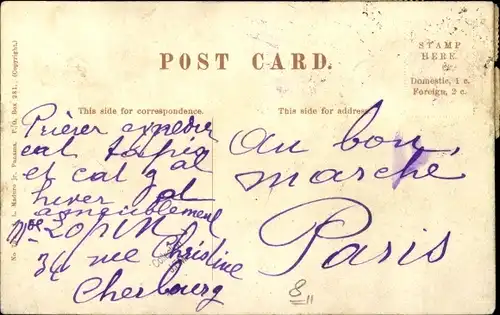 POST CARD.
STAMP
HERE.
Domestic, 1 c.
Foreign, 2 c.
This side for correspondence.
This side for address.
Prière expedier
cat tapis
et cat gal
hiver et
ameublement
Lopin
34 rue Christine
Cherbourg
au bon
marché
Paris
8
No
L. Maduro Jr. Panama. P. O. Box 251. (Copyright.)